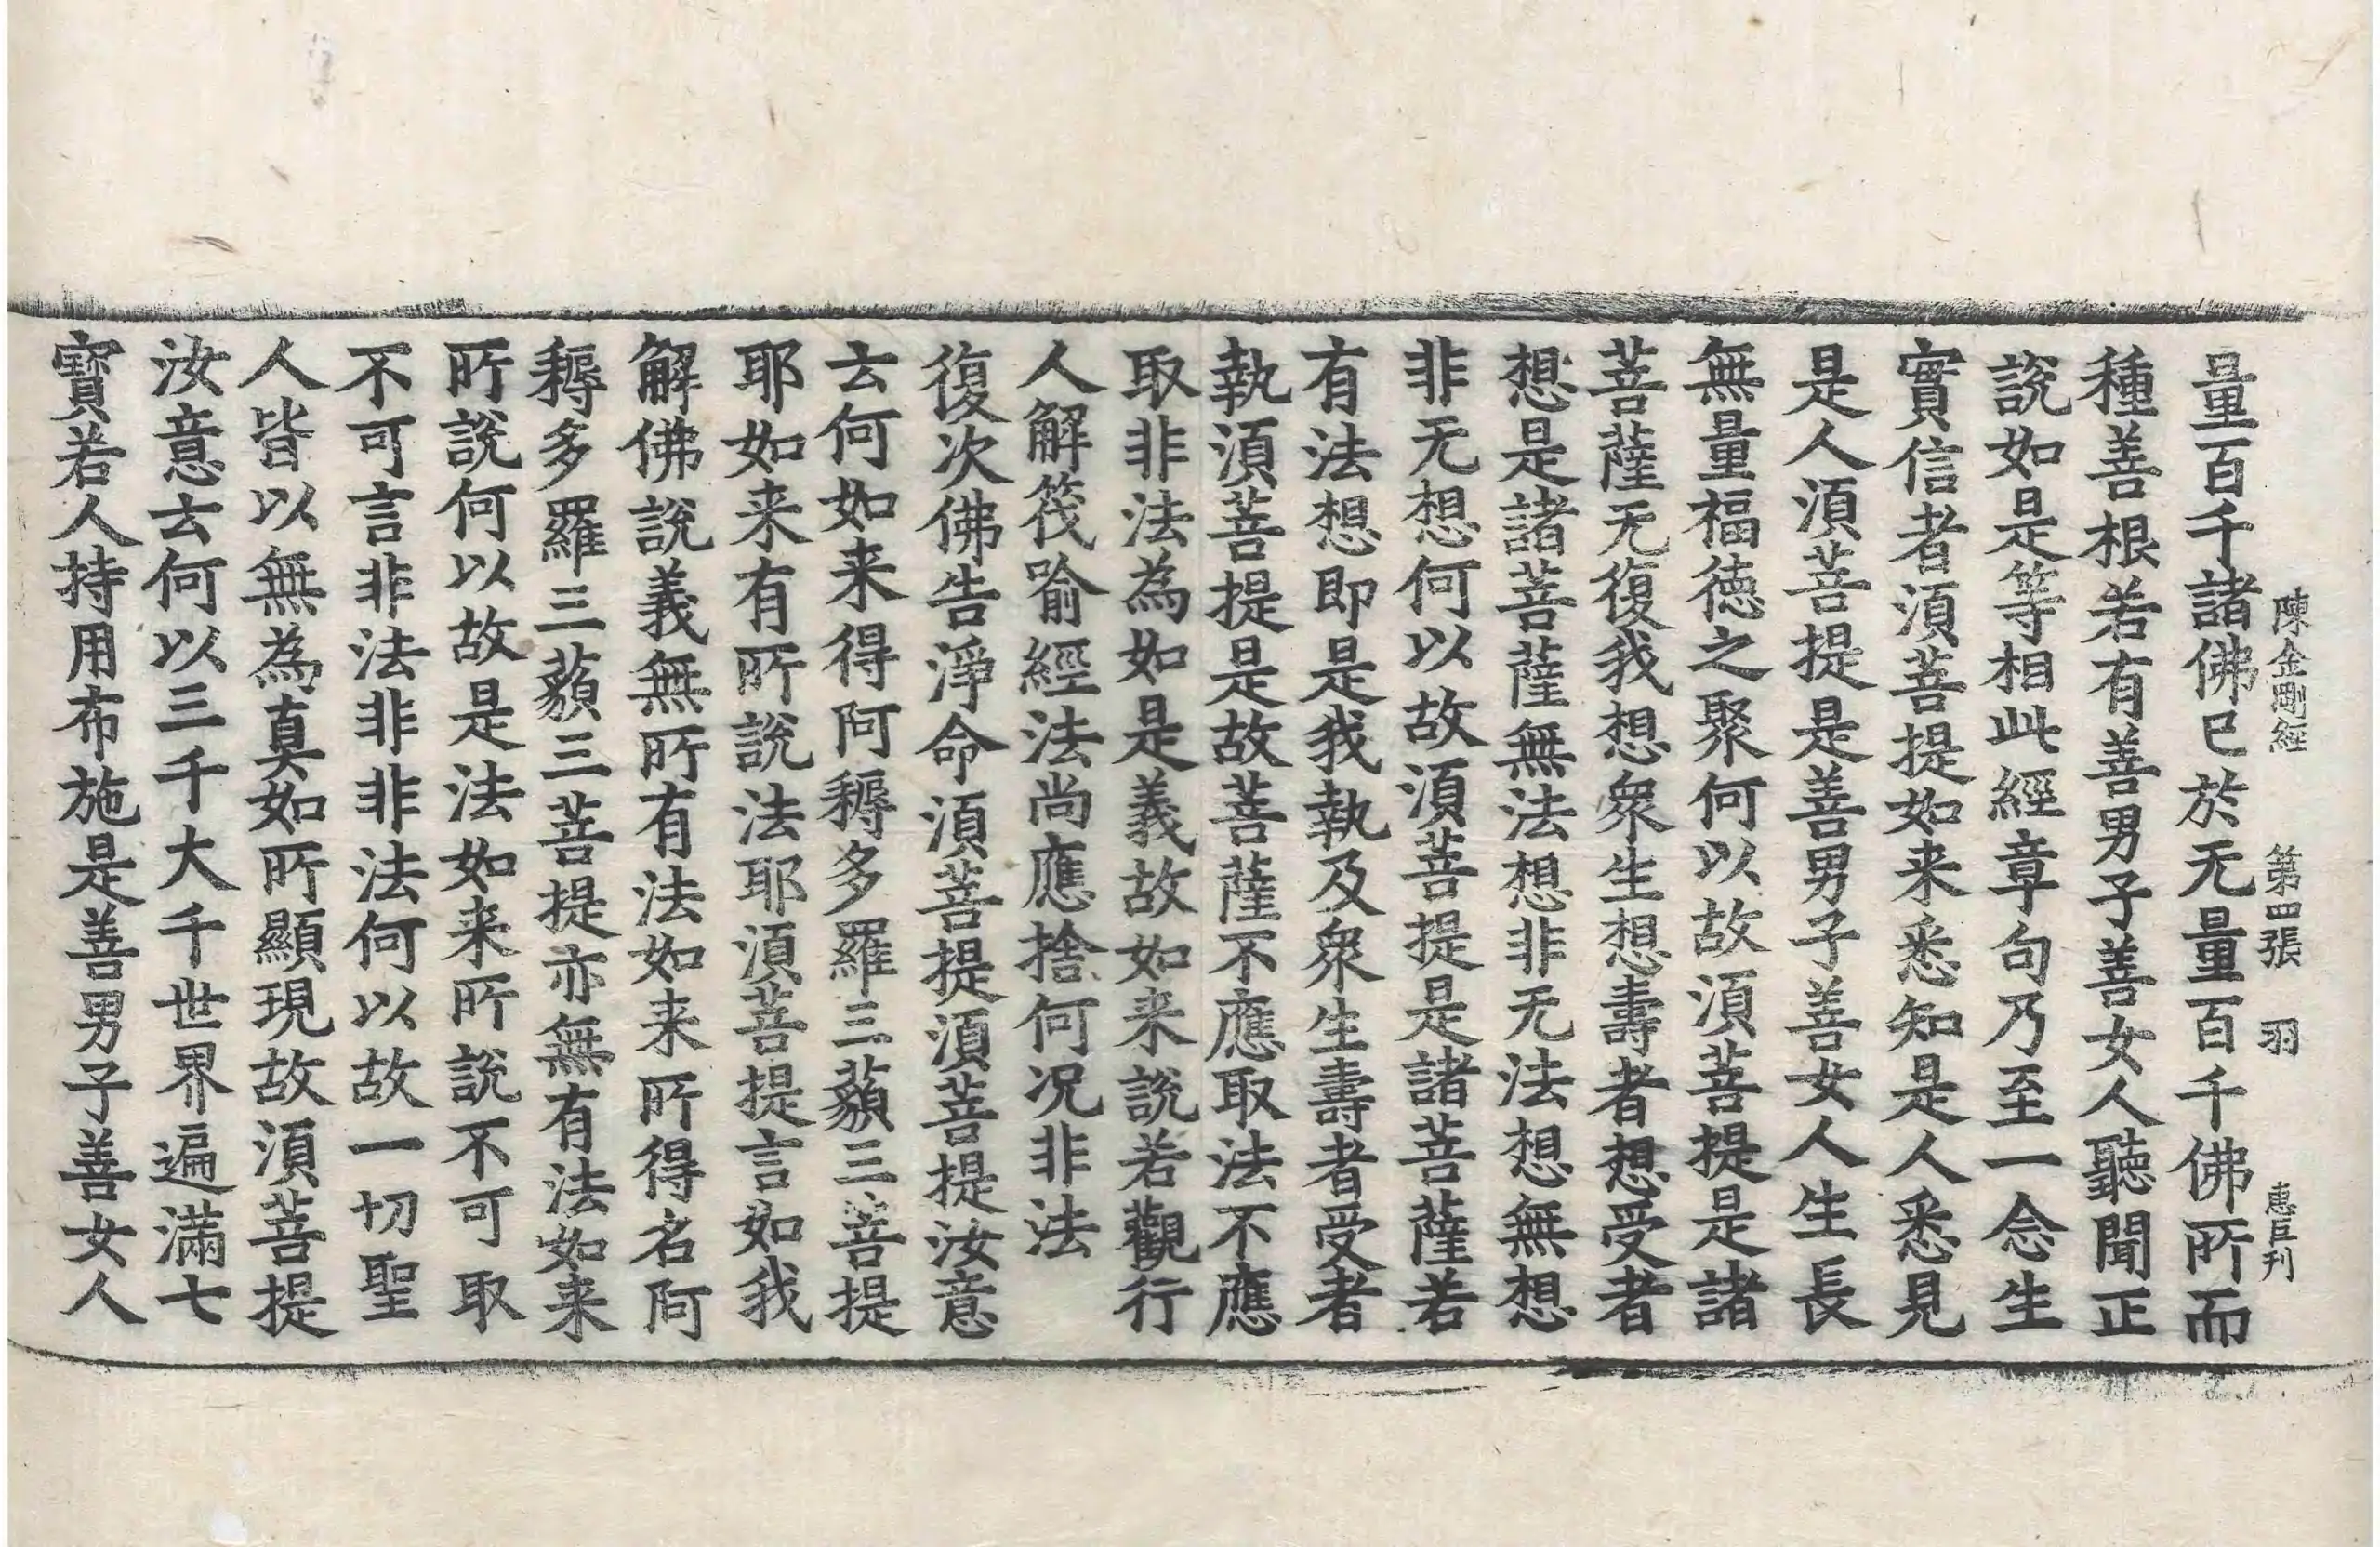 陳金剛經 第四張 羽 惠巨刊
量百千諸佛已於无量百千佛所而
種善根若有善男子善女人聽聞正
說如是等相此經章句乃至一念生
實信者湏菩提如来悉知是人悉見
是人湏菩提是善男子善女人生長
無量福德之聚何以故湏菩提是諸
菩薩无復我想衆生想壽者想受者
想是諸菩薩無法想非无法想無想
非无想何以故湏菩提是諸菩薩若
有法想即是我執及衆生壽者受者
執湏菩提是故菩薩不應取法不應
取非法為如是義故如来說若觀行
人解筏喻經法尚應捨何況非法
復次佛告淨命湏菩提湏菩提汝意
云何如来得阿耨多羅三藐三菩提
耶如来有所說法耶湏菩提言如我
解佛說義無所有法如来所得名阿
耨多羅三藐三菩提亦無有法如来
所說何以故是法如来所說不可取
不可言非法非非法何以故一切聖
人皆以無為真如所顯現故湏菩提
汝意云何以三千大千世界遍滿七
寶若人持用布施是善男子善女人